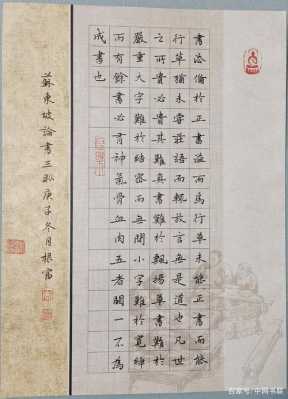 書法備於正書溢而為行草未能正書而能
行草猶未嘗莊語而輒放言無是道也凡世
之所貴必貴其難真書難於飄揚草書難於
嚴重大字難於結密而無間小字難於寬綽
而有餘書必有神氣骨血肉五者闕一不為
成書也
蘇東坡論書三則庚子冬月根富
百家号/中国书联